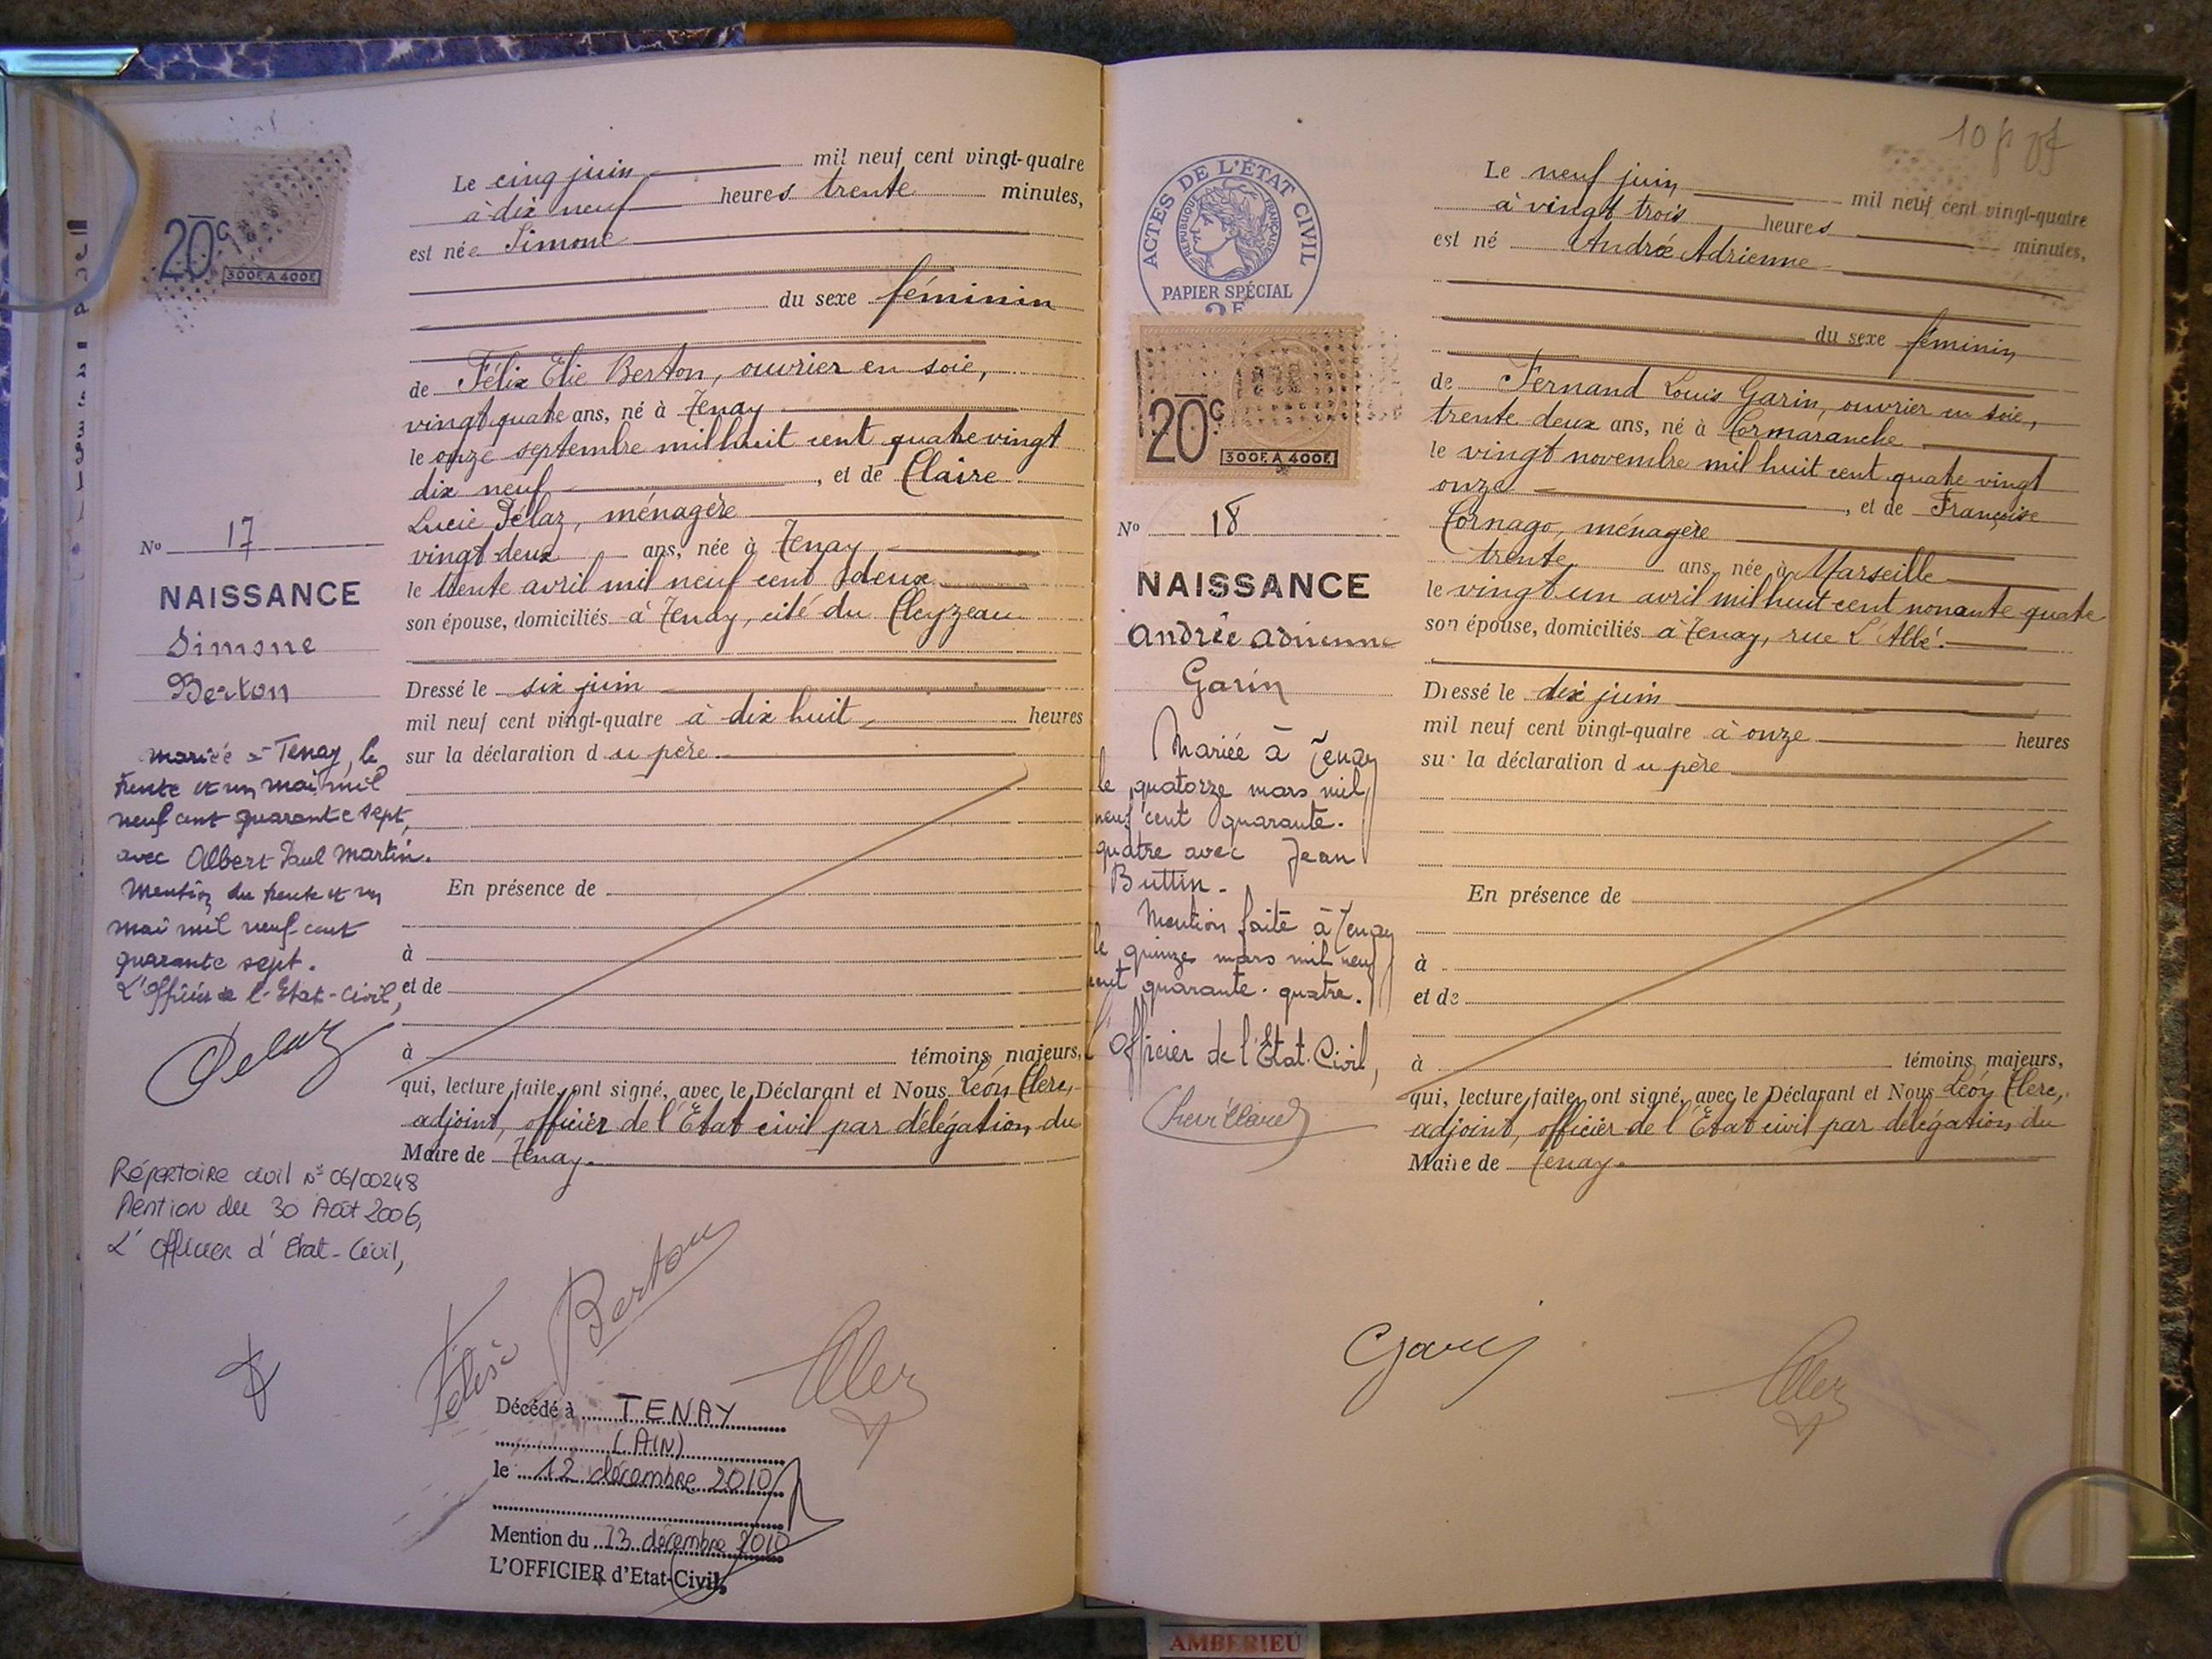 20c
300F. A 400F.
No 17
NAISSANCE
Simone
Berton
mariée à Tenay, le
trente et un mai mil
neuf cent quarante sept,
avec Albert Paul Martin.
Mention du trente et un
mai mil neuf cent
quarante sept.
L'Officier de l'Etat-Civil,
Répertoire civil n° 06/00248
Mention du 30 Août 2006,
L'Officier d'Etat-Civil,
Le cinq juin mil neuf cent vingt-quatre
à dix neuf heures trente minutes,
est née Simone
du sexe féminin
de Félix Elie Berton, ouvrier en soie,
vingt quatre ans, né à Tenay
le onze septembre mil huit cent quatre vingt
dix neuf, et de Claire
Lucie Pélaz, ménagère
vingt deux ans, née à Tenay
le trente avril mil neuf cent deux
son épouse, domiciliés à Tenay, cité du Cleyzeau
Dressé le six juin
mil neuf cent vingt-quatre à dix huit heures
sur la déclaration du père.
En présence de
à
et de
à témoins majeurs,
qui, lecture faite, ont signé, avec le Déclarant et Nous Léon Clerc,
adjoint, officier de l'Etat civil par délégation du
Maire de Tenay.
Félix Berton
Clerc
Décédé à TENAY
(AIN)
le 12 décembre 2010
Mention du 13 décembre 2010
L'OFFICIER d'Etat-Civil,
10
ACTES DE L'ÉTAT CIVIL
RÉPUBLIQUE FRANÇAISE
PAPIER SPÉCIAL
2F
20c
300F. A 400F.
No 18
NAISSANCE
Andrée Adrienne
Garin
Mariée à Tenay
le quatorze mars mil
neuf cent quarante-
quatre avec Jean
Buttin.
Mention faite à Tenay
le quinze mars mil neuf
cent quarante-quatre.
L'Officier de l'Etat-Civil,
Le neuf juin mil neuf cent vingt-quatre
à vingt trois heures minutes,
est né Andrée Adrienne
du sexe féminin
de Fernand Louis Garin, ouvrier en soie,
trente deux ans, né à Cormaranche
le vingt novembre mil huit cent quatre vingt
onze, et de Françoise
Cornago, ménagère
trente ans, née à Marseille
le vingt un avril mil huit cent nonante quatre
son épouse, domiciliés à Tenay, rue L'Abbé.
Dressé le dix juin
mil neuf cent vingt-quatre à onze heures
sur la déclaration du père
En présence de
à
et de
à témoins majeurs,
qui, lecture faite, ont signé, avec le Déclarant et Nous Léon Clerc,
adjoint, officier de l'Etat civil par délégation du
Maire de Tenay.
Garin
Clerc
AMBERIEU